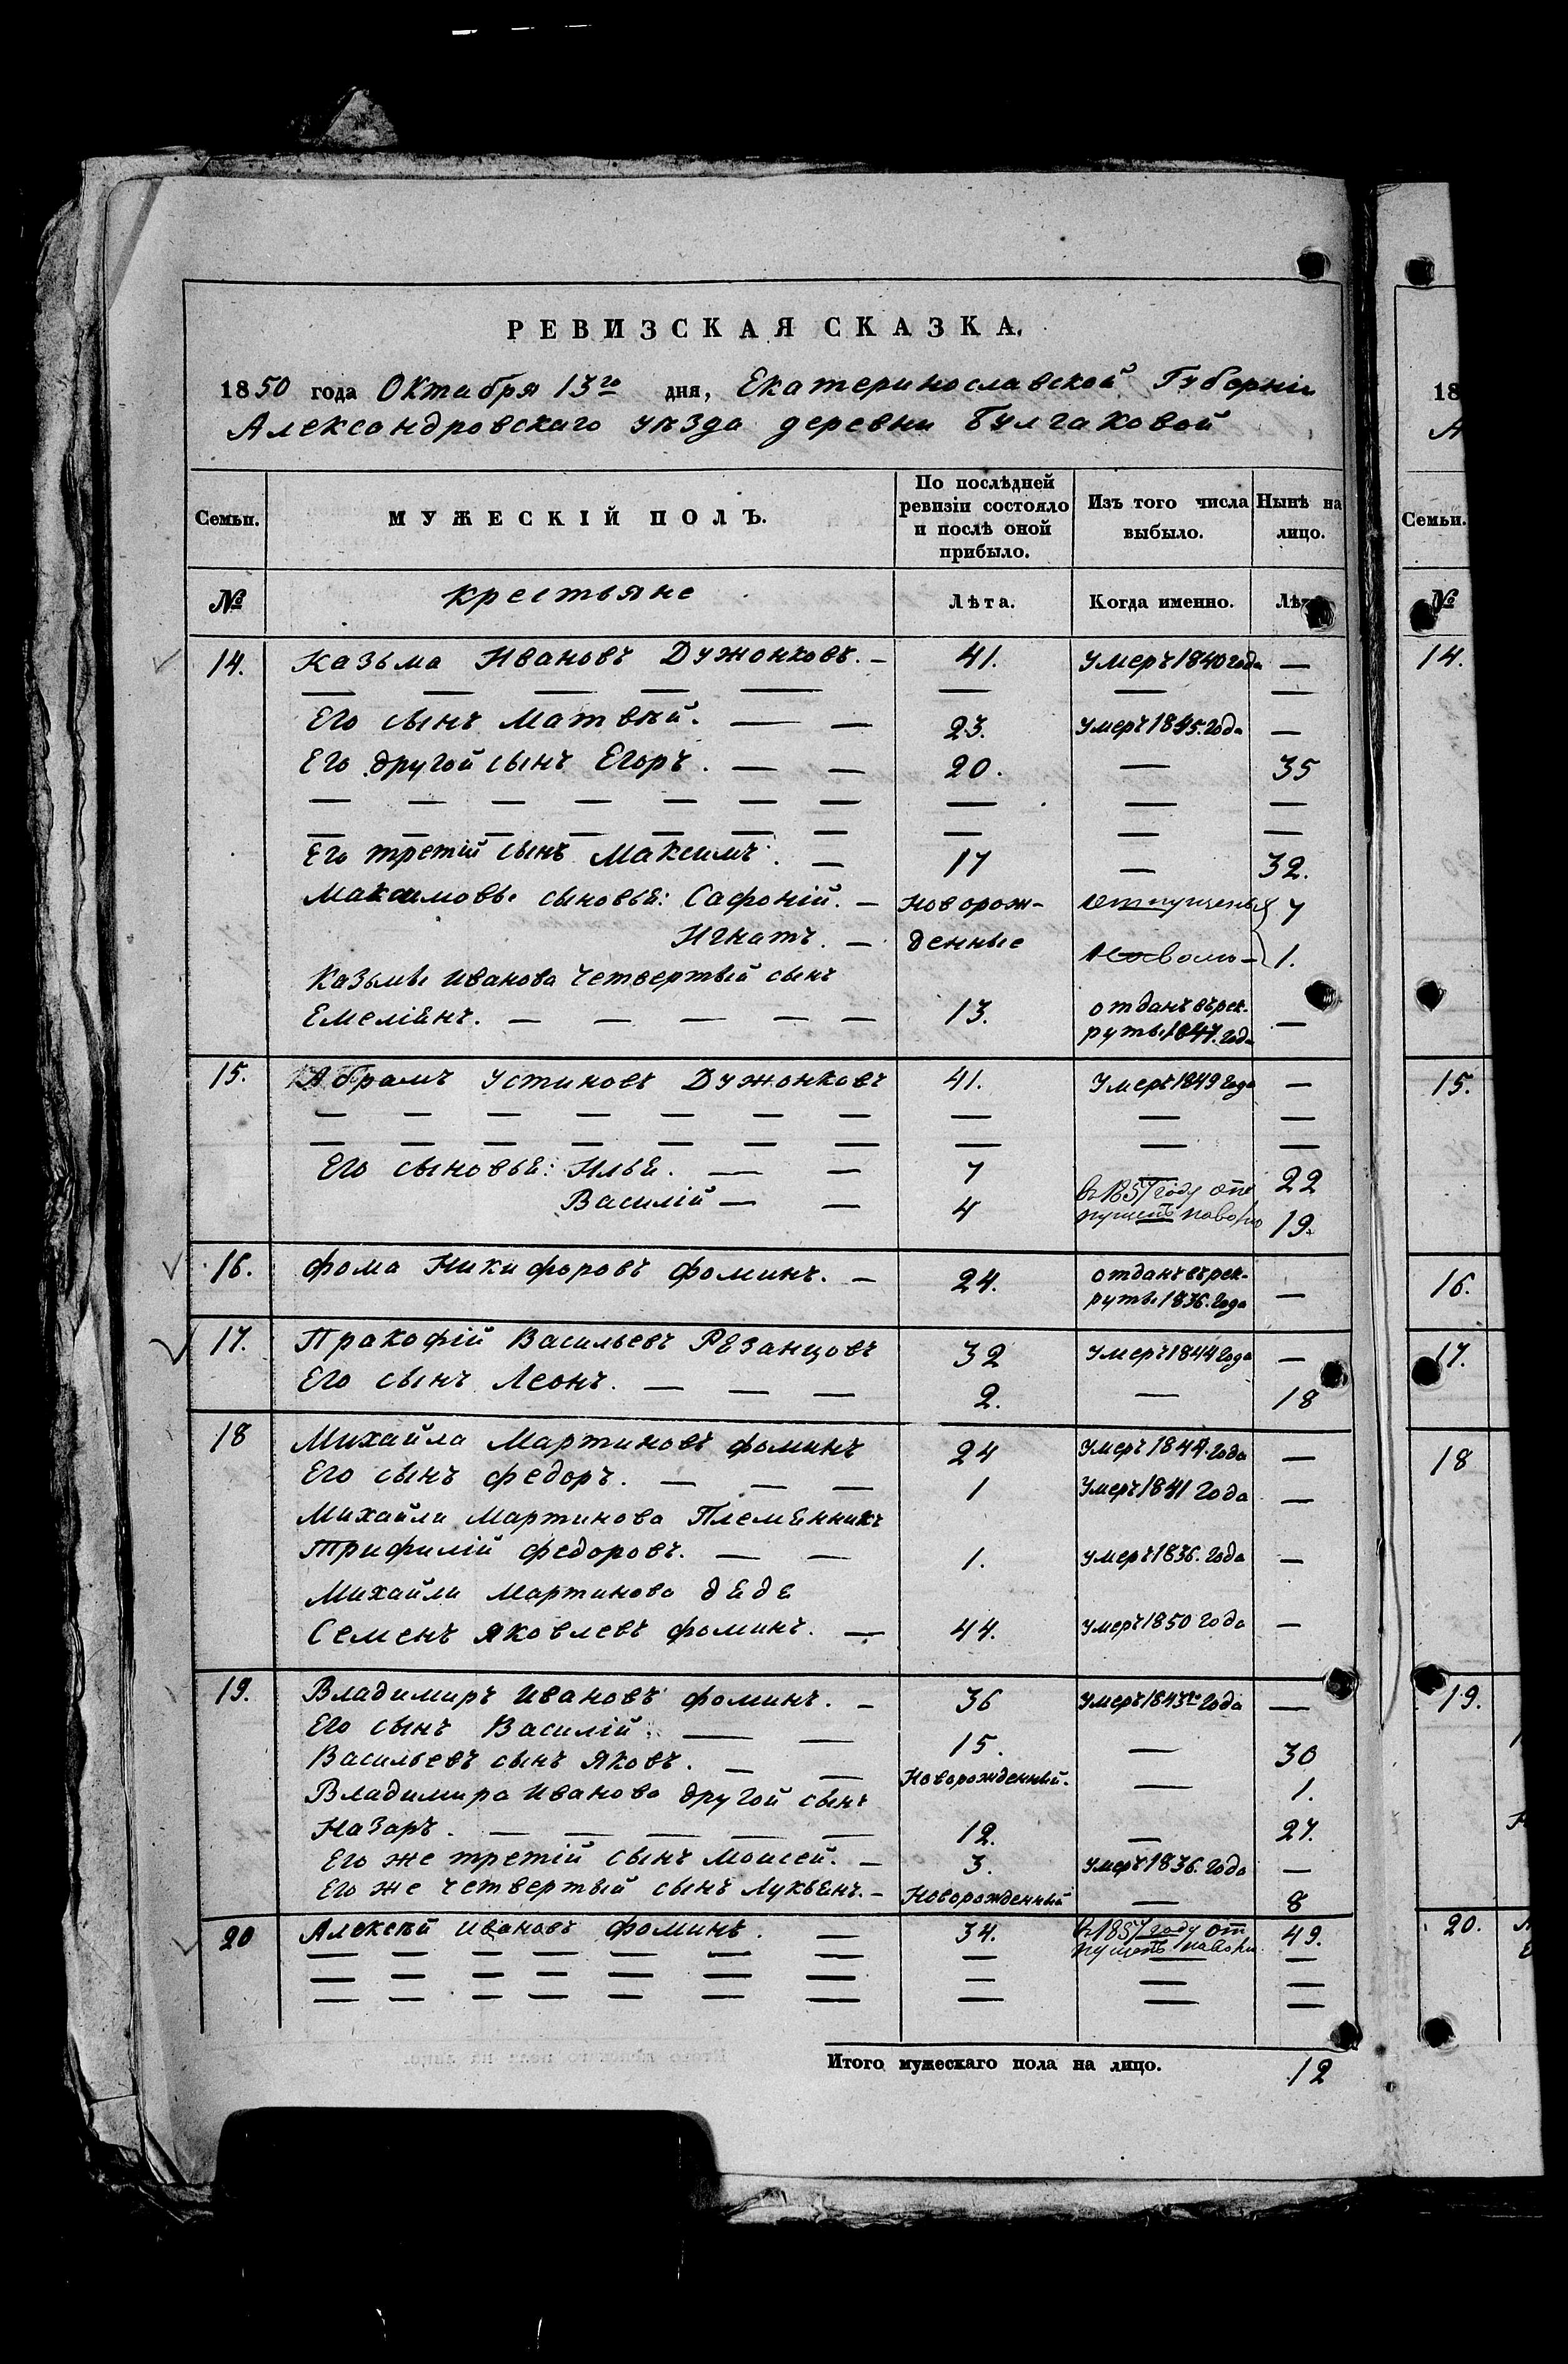 РЕВИЗСКАЯ СКАЗКА.
1850 года Октября 13го дня, Екатеринославской Губерніи
Александровскаго уѣзда деревни Булгаковой
Семьи. МУЖЕСКІЙ ПОЛЪ. По послѣдней ревизіи состояло и послѣ оной прибыло. Изъ того числа выбыло. Нынѣ на лицо.
№ крестьяне Лѣта. Когда именно. Лѣта
14. Казьма Ивановъ Дужонковъ. — 41. Умеръ 1840 года —
Его сынъ Матвѣй. — — 23. Умеръ 1845. года —
Его другой сынъ Егоръ. — — 20. — 35
Его третій сынъ Максимъ. — 17 — 32.
Максимовы сыновья: Сафоній. — Новорож- отпущены 7
Игнатъ. — денные 1.
Казьмы Иванова четвертый сынъ
Емеліянъ. — — — — — 13. отданъ въ рек-
руты 1847. года —
15. Абрамъ Устиновъ Дужонковъ 41. Умеръ 1849 года —
Его сыновья: Илья. — — 7 — 22
Василій — — 4 въ 1857 году от
пущенъ на волю 19.
16. Фома Никифоровъ Фоминъ. — 24. отданъ въ рек-
руты 1836. года —
17. Пракофій Васильевъ Резанцовъ 32 Умеръ 1844 года —
Его сынъ Леонъ. — — — 2. — 18
18 Михайла Мартиновъ Фоминъ 24 Умеръ 1844. года —
Его сынъ Федоръ. — — — 1 Умеръ 1841 года —
Михайли Мартинова Племянникъ
Трифилій Федоровъ. — — 1. умеръ 1836. года —
Михайли Мартинова дядя
Семенъ Яковлевъ Фоминъ. — 44. умеръ 1850 года —
19. Владимиръ Ивановъ Фоминъ. — 36 Умеръ 1843го года —
Его сынъ Василій. — — 15. — 30
Васильевъ сынъ Яковъ. — — Новорожденный. — 1.
Владимира Иванова другой сынъ
Назаръ. — — — — — 12. — 27.
Его же третій сынъ Моисей. — 3. умеръ 1836. года —
Его же четвертый сынъ Лукьянъ. — Новорожденный — 8
20 Алексѣй Ивановъ Фоминъ. — 34. въ 1857 году от
пущенъ на волю 49.
Итого мужескаго пола на лицо. 12
18
А
Семьи.
№
14.
15.
16.
17.
18
19.
20.